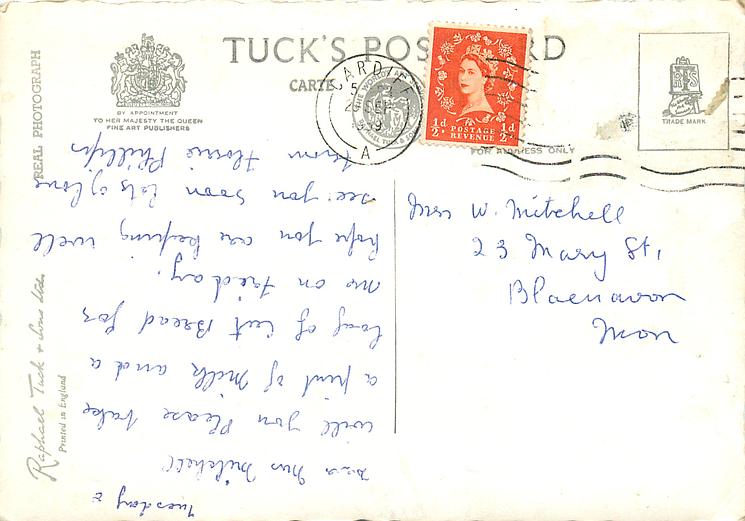 TUCK'S POS RD
CARTE
BY APPOINTMENT
TO HER MAJESTY THE QUEEN
FINE ART PUBLISHERS
REAL PHOTOGRAPH
CARDIFF
5
SEP
A
POSTAGE
REVENUE
½d
½d
FOR ADDRESS ONLY
TRADE MARK
Mrs W. Mitchell
23 Mary St,
Blaenavon
Mon
Raphael Tuck & Sons Ltd.
Printed in England
Tuesday
Dear Mrs Mitchell
will you Please take
a pint of Milk and a
loaf of Cut Bread for
me on Friday.
hope you are keeping well
see you soon lots of love
from Florrie Phillips